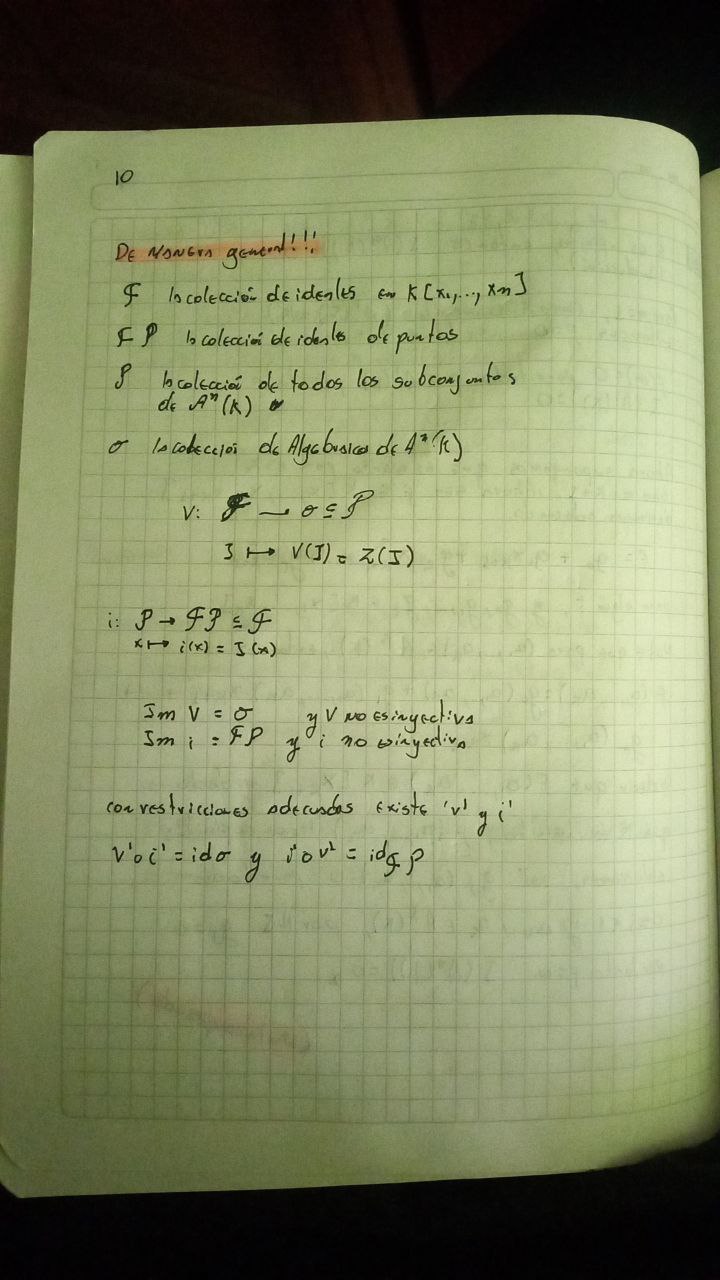 10
De manera general!!!
F la colección de ideales en K[x₁,...,xn]
FP la colección de ideales de puntos
P la colección de todos los subconjuntos
de Aⁿ(K)
σ la colección de Algebraicos de Aⁿ(K)
V: F → σ ⊆ P
J ↦ V(J) = Z(J)
i: P → FP ⊆ F
x ↦ i(x) = J(x)
Im V = σ y V no es inyectiva
Im i = FP y i no es inyectiva
con restricciones adecuadas existe 'v' y i'
V'∘i' = idσ y i'∘v' = id FP